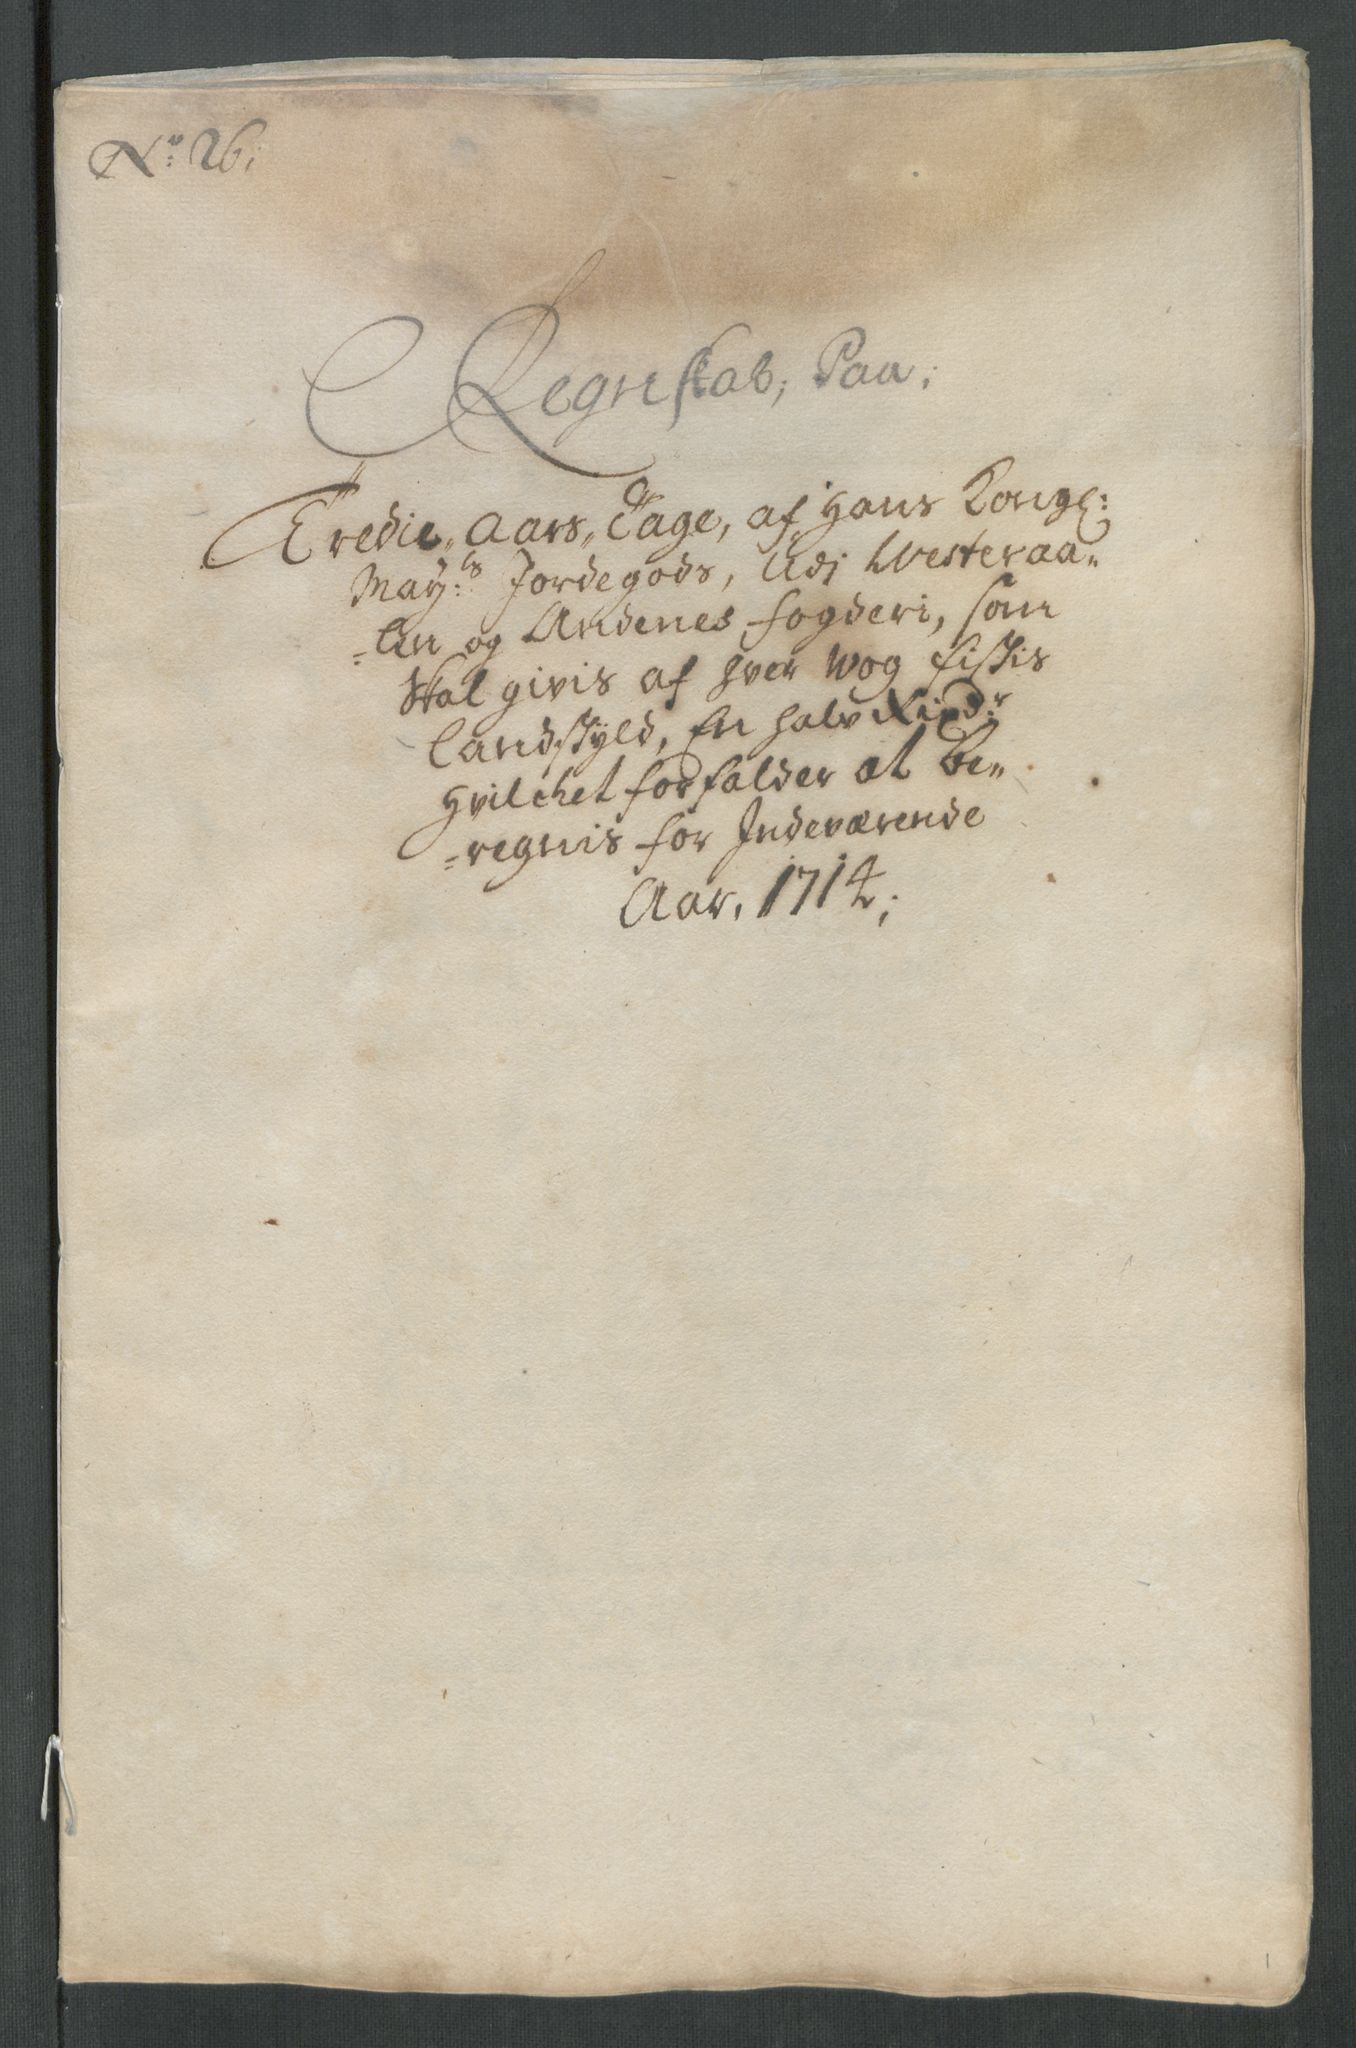 No: 26;
Regnskab, Paa;
Tredie, Aars, Tage, af Hans Kongel:
May:ts Jordegods, Udj Westeraa-
=len og Andenes fogderi, som
skal givis af hver Wog fiskis
Landskyld, En halv Rixd:r
Hvilchet forfalder at be-
=regnis for Indeværende
Aar, 1714;
1